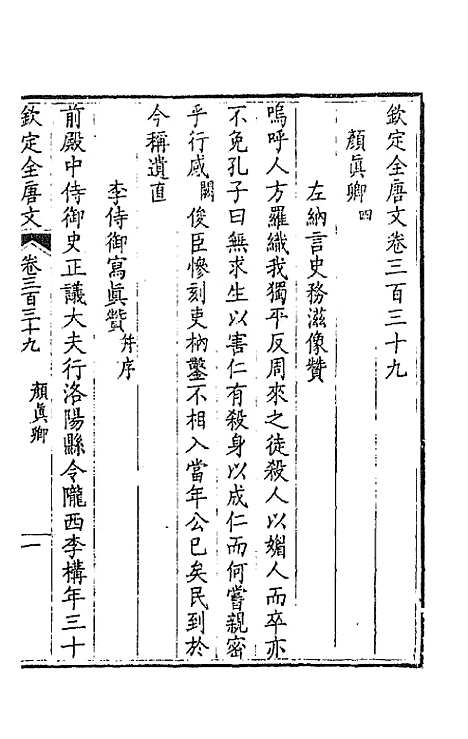 欽定全唐文卷三百三十九
顏眞卿四
左納言史務滋像贊
嗚呼人方羅織我獨平反周來之徒殺人以媚人而卒亦
不免孔子曰無求生以害仁有殺身以成仁而何嘗親密
乎行戚闕俊臣慘刻吏枘鑿不相入當年公已矣民到於
今稱遺直
李侍御寫眞贊并序
前殿中侍御史正議大夫行洛陽縣令隴西李構年三十
欽定全唐文
卷三百三十九
顏眞卿
一